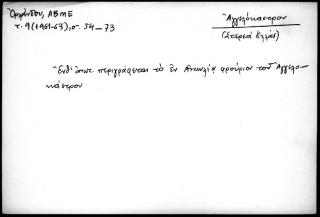 Ὀρλάνδου, ΑΒΜΕ
τ. 9 (1961-63), σ. 54-73
Ἀγγελόκαστρον
(Στερεά Ἑλλάς)
Ἔνθ' ὅπου περιγράφεται τὸ ἐν Αἰτωλίᾳ φρούριον τοῦ Ἀγγελο-
κάστρου